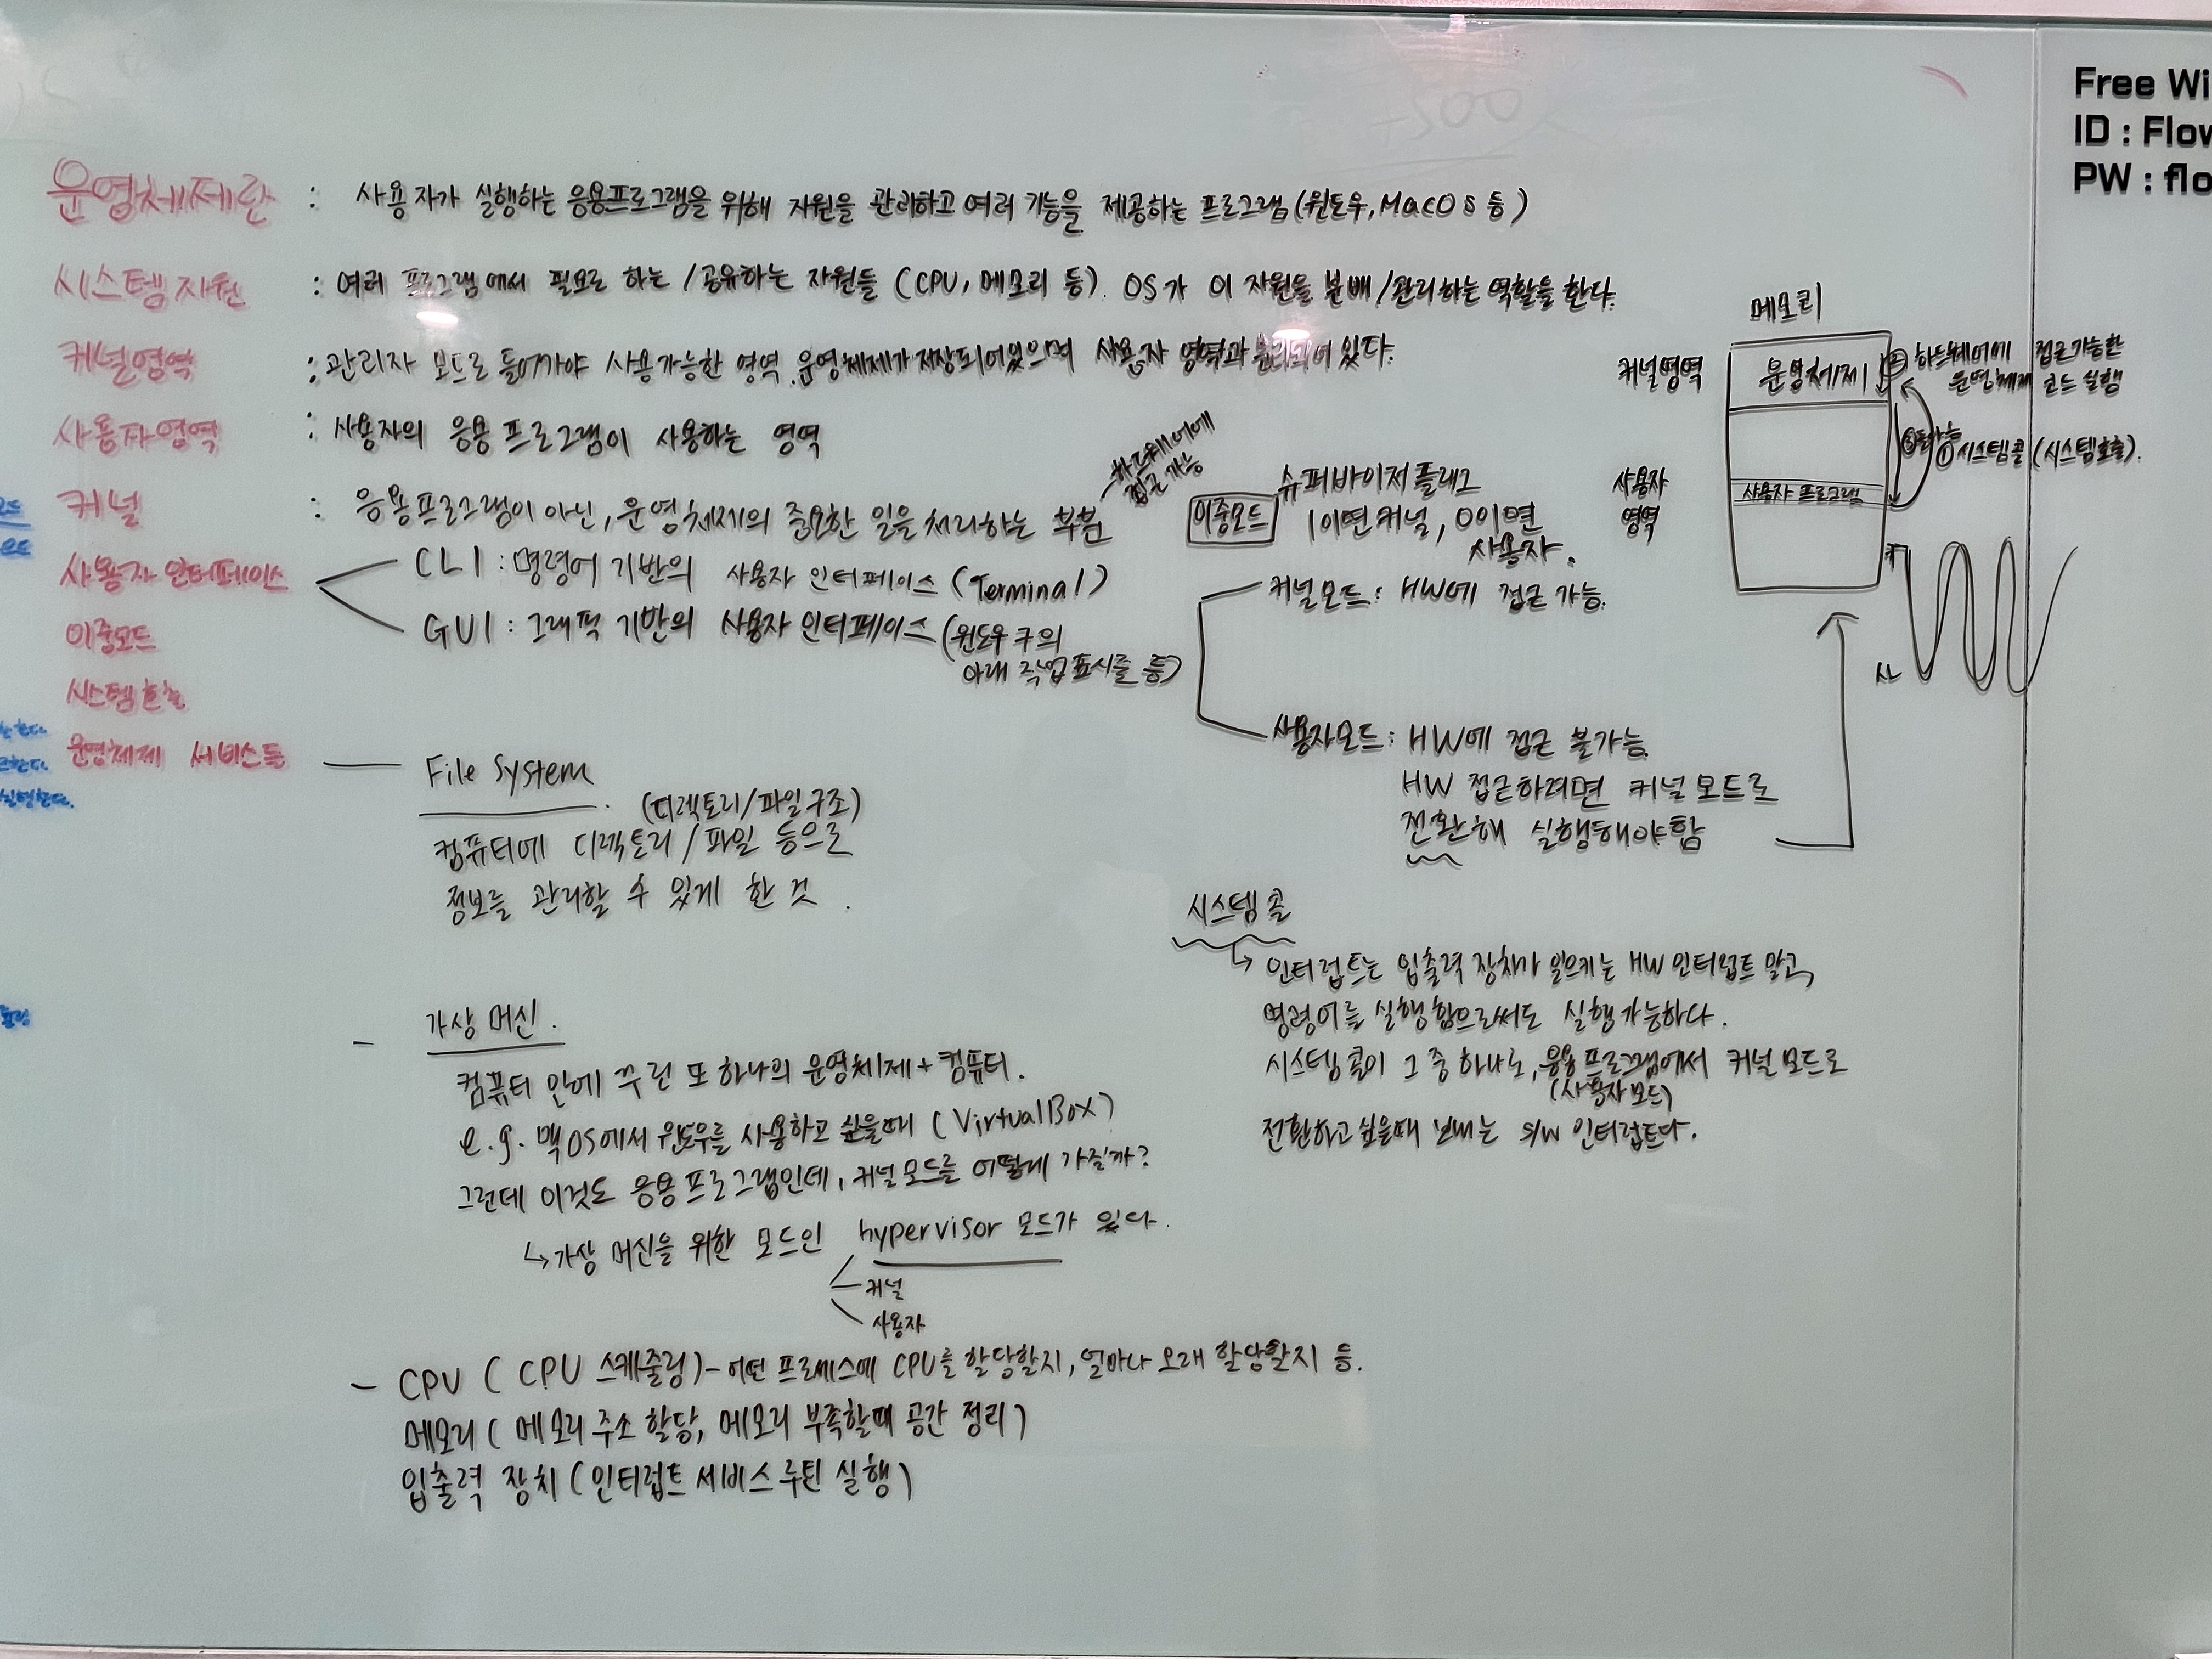 Free Wi
ID : Flow
PW : flo
운영체제란 : 사용자가 실행하는 응용프로그램을 위해 자원을 관리하고 여러 기능을 제공하는 프로그램 (윈도우, MacOS 등)
시스템 자원 : 여러 프로그램에서 필요로 하는 / 공유하는 자원들 (CPU, 메모리 등). OS가 이 자원을 분배/관리하는 역할을 한다.
커널영역 : 관리자 모드로 들어가야 사용가능한 영역. 운영체제가 저장되어있으며 사용자 영역과 분리되어 있다.
사용자영역 : 사용자의 응용 프로그램이 사용하는 영역
커널 : 응용프로그램이 아닌, 운영체제의 중요한 일을 처리하는 부분
하드웨어에
접근 가능
사용자 인터페이스
CLI : 명령어 기반의 사용자 인터페이스 (Terminal)
GUI : 그래픽 기반의 사용자 인터페이스 (윈도우
아래 작업표시줄 등)
이중모드
시스템 호출
운영체제 서비스들
File System
(디렉토리/파일구조)
컴퓨터에 디렉토리/파일 등으로
정보를 관리할 수 있게 한 것.
- 가상 머신.
컴퓨터 안에 꾸린 또 하나의 운영체제+컴퓨터.
e.g. 맥OS에서 윈도우를 사용하고 싶을때 (VirtualBox)
그런데 이것도 응용 프로그램인데, 커널 모드를 어떻게 가질까?
↳ 가상 머신을 위한 모드인 hypervisor 모드가 있다.
커널
사용자
- CPU ( CPU 스케줄링) - 어떤 프로세스에 CPU를 할당할지, 얼마나 오래 할당할지 등.
메모리 ( 메모리 주소 할당, 메모리 부족할때 공간 정리)
입출력 장치 (인터럽트 서비스 루틴 실행)
이중모드
슈퍼바이저 플래그
1이면 커널, 0이면
사용자.
커널 모드 : HW에 접근 가능.
사용자모드 : HW에 접근 불가능.
HW 접근하려면 커널 모드로
전환해 실행해야함
메모리
커널영역
운영체제
② 하드웨어에 접근가능한
운영체제 코드 실행
① 시스템콜 (시스템호출).
사용자
영역
사용자 프로그램
커
사
시스템 콜
↳ 인터럽트는 입출력 장치가 일으키는 HW 인터럽트 말고,
명령어를 실행함으로써도 실행가능하다.
시스템 콜이 그 중 하나로, 응용 프로그램에서 커널 모드로
(사용자 모드)
전환하고 싶을때 보내는 S/W 인터럽트다.